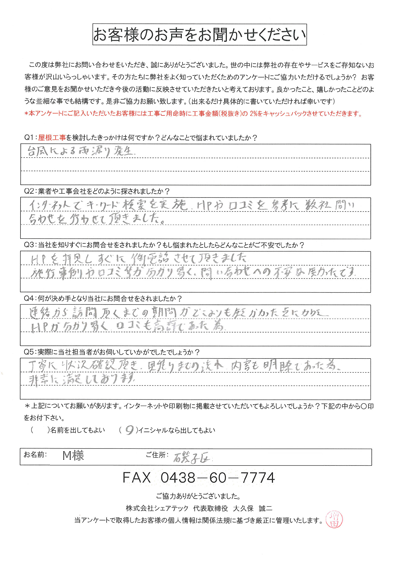 お客様のお声をお聞かせください
この度は弊社にお問い合わせをいただき、誠にありがとうございました。世の中には弊社の存在やサービスをご存知ないお
客様が沢山いらっしゃいます。その方たちに弊社をよく知っていただくためのアンケートにご協力いただけるでしょうか? お客
様のご意見をお聞かせいただき今後の活動に反映させていただきたいと考えております。良かったこと、嬉しかったことどのよ
うな些細な事でも結構です。是非ご協力お願い致します。(出来るだけ具体的に書いていただければ幸いです)
*本アンケートにご記入いただいたお客様には工事ご用命時に工事金額(税抜き)の2%をキャッシュバックさせていただきます。
Q1:屋根工事を検討したきっかけは何ですか?どんなことで悩まれていましたか?
台風による雨漏り発生
Q2:業者や工事会社をどのように探されましたか?
インターネットでキーワード検索を実施、HPや口コミを参考に数社問い
合わせを行わせて頂きました。
Q3:当社を知りすぐにお問合せをされましたか?もし悩まれたとしたらどんなことがご不安でしたか?
HPを拝見しすぐに御電話させて頂きました
施工事例や口コミ等が分かり易く、問い合わせへの不安は無かったです
Q4:何が決め手となり当社にお問合せをされましたか?
連絡から訪問頂くまでの期間がどこよりも短かった点に加え、
HPが分かり易く口コミも高評であった為
Q5:実際に当社担当者がお伺いしていかがでしたでしょうか?
丁寧に状況確認頂き、見積りまでの流れ、内容も明瞭であった為、
非常に満足しております。
*上記についてお願いがあります。インターネットや印刷物に掲載させていただいてもよろしいでしょうか?下記の中から〇印
をお付下さい。
( )名前を出してもよい ( )イニシャルなら出してもよい
お名前: M様 ご住所: 磯子区
FAX 0438-60-7774
ご協力ありがとうございました。
株式会社シェアテック 代表取締役 大久保 誠二
当アンケートで取得したお客様の個人情報は関係法規に基づき厳正に管理いたします。